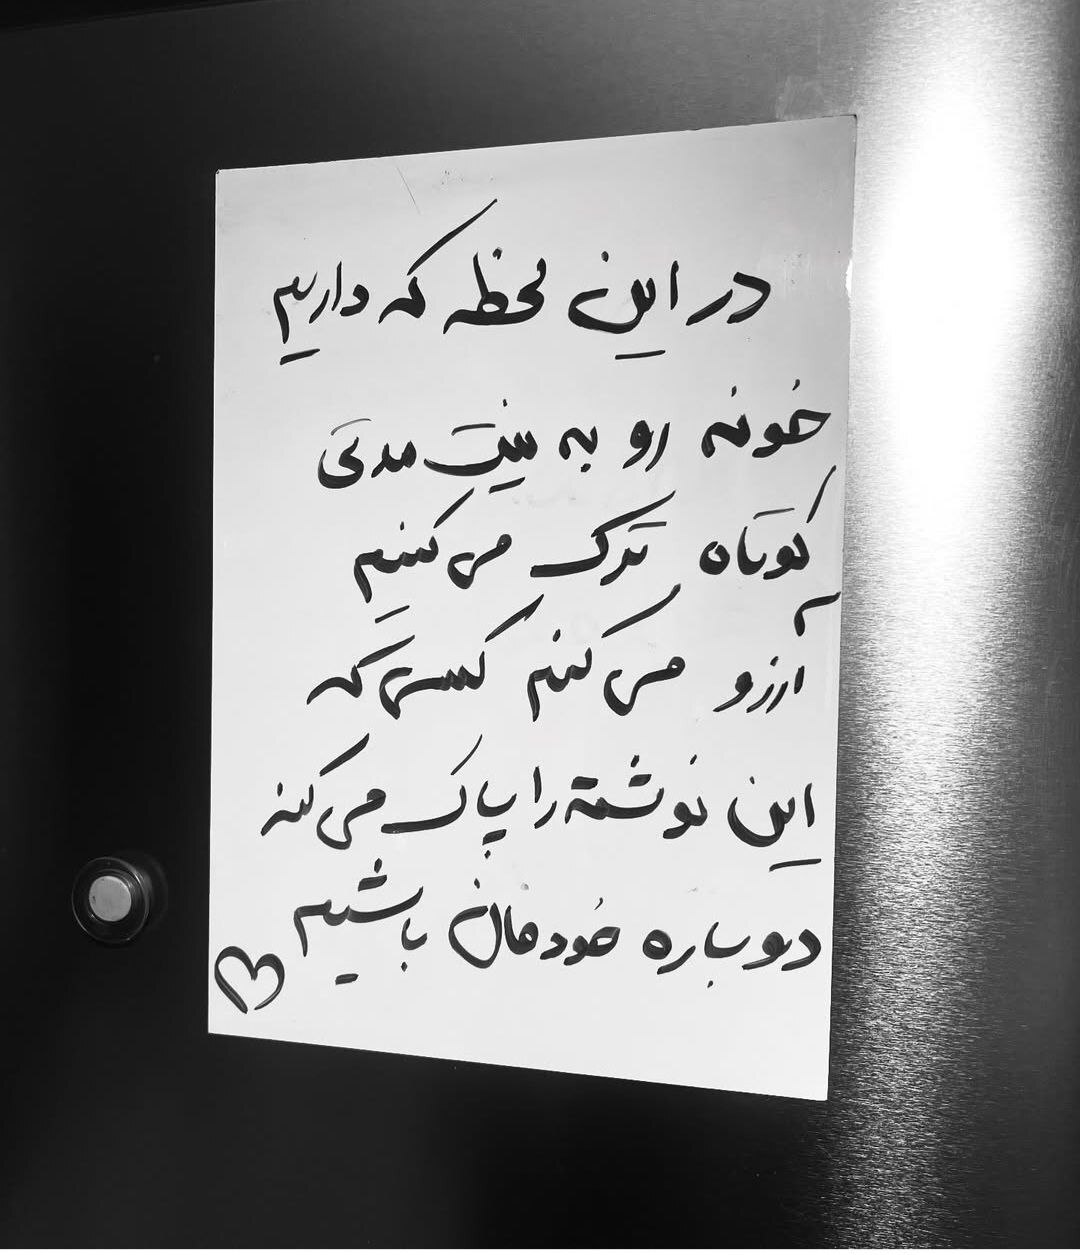 در این لحظه که داریم
خونه رو به نیت مدتی
کوتاه ترک می‌کنیم
آرزو می‌کنم کسی که
این نوشته را پاک می‌کند
دوباره خودمان باشیم